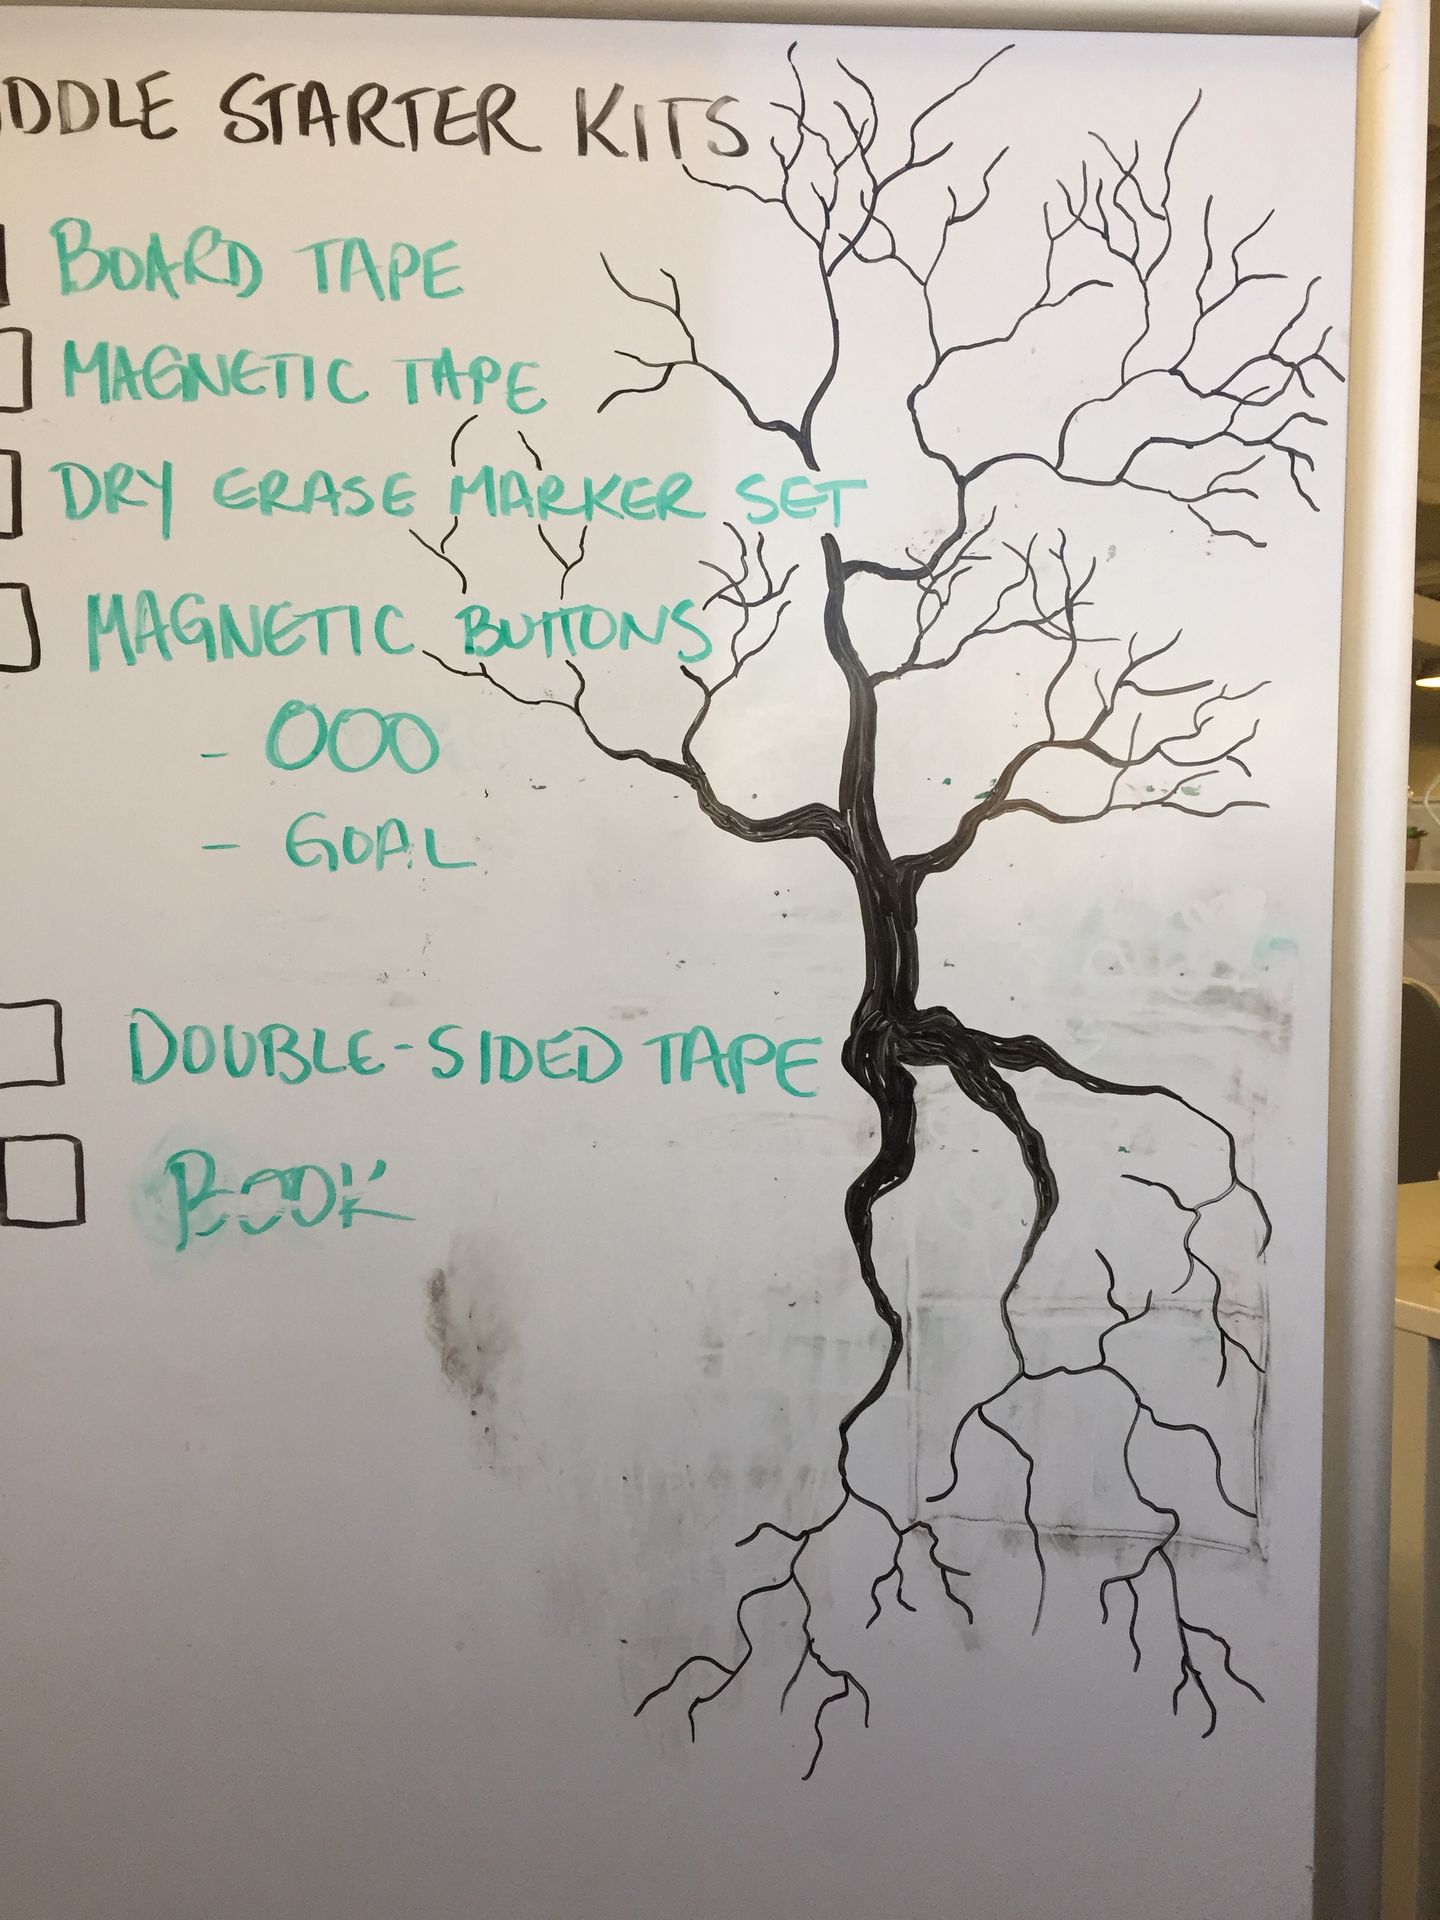 DDLE STARTER KITS
BOARD TAPE
MAGNETIC TAPE
DRY ERASE MARKER SET
MAGNETIC BUTTONS
- OOO
- GOAL
DOUBLE-SIDED TAPE
BOOK